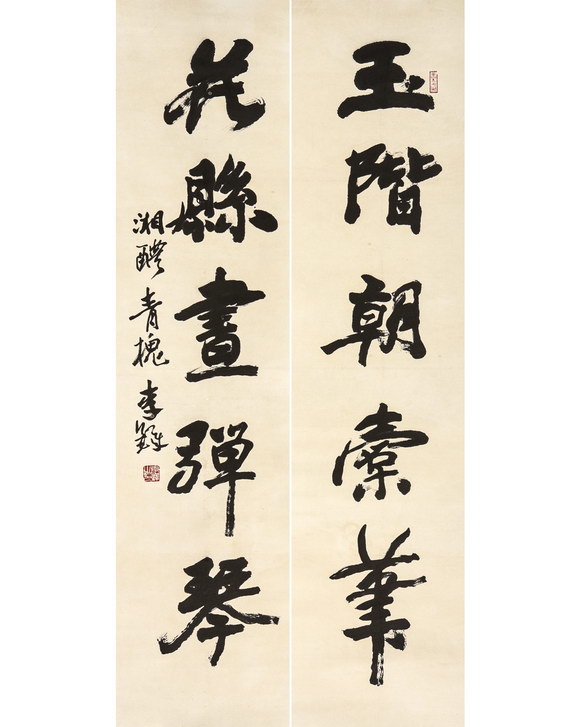 玉階朝索筆
花縣晝彈琴
湘醴青槐李鐸